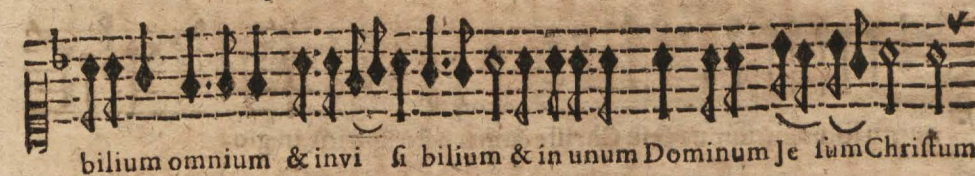 bilium omnium & invi ſi bilium & in unum Dominum Je ſum Chriſtum